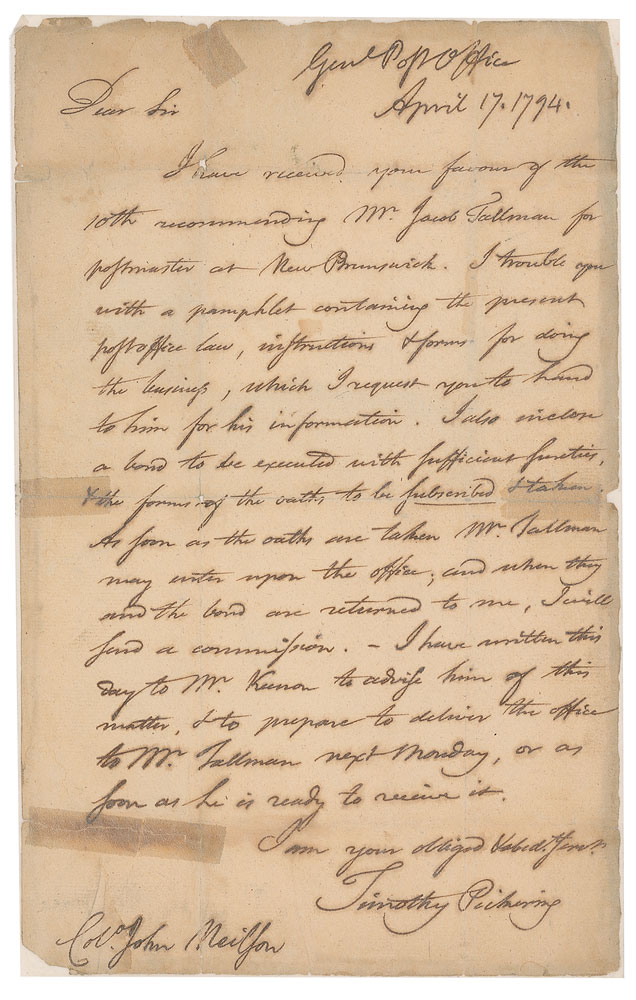 Genl Post Office
April 17. 1794.
Dear Sir
I have received your favour of the
10th recommending Mr. Jacob Tallman for
postmaster at New Brunswick. I trouble you
with a pamphlet containing the present
post office law, instructions & forms for doing
the business, which I request you to hand
to him for his information. I also inclose
a bond to be executed with sufficient sureties,
& the forms of the oaths to be subscribed & taken.
As soon as the oaths are taken Mr. Tallman
may enter upon the office; and when they
and the bond are returned to me, I will
send a commission. – I have written this
day to Mr. Keenon to advise him of this
matter, & to prepare to deliver the office
to Mr. Tallman next Monday, or as
soon as he is ready to receive it.
I am your obliged & obedt. servt.
Timothy Pickering
Colo. John Neilson